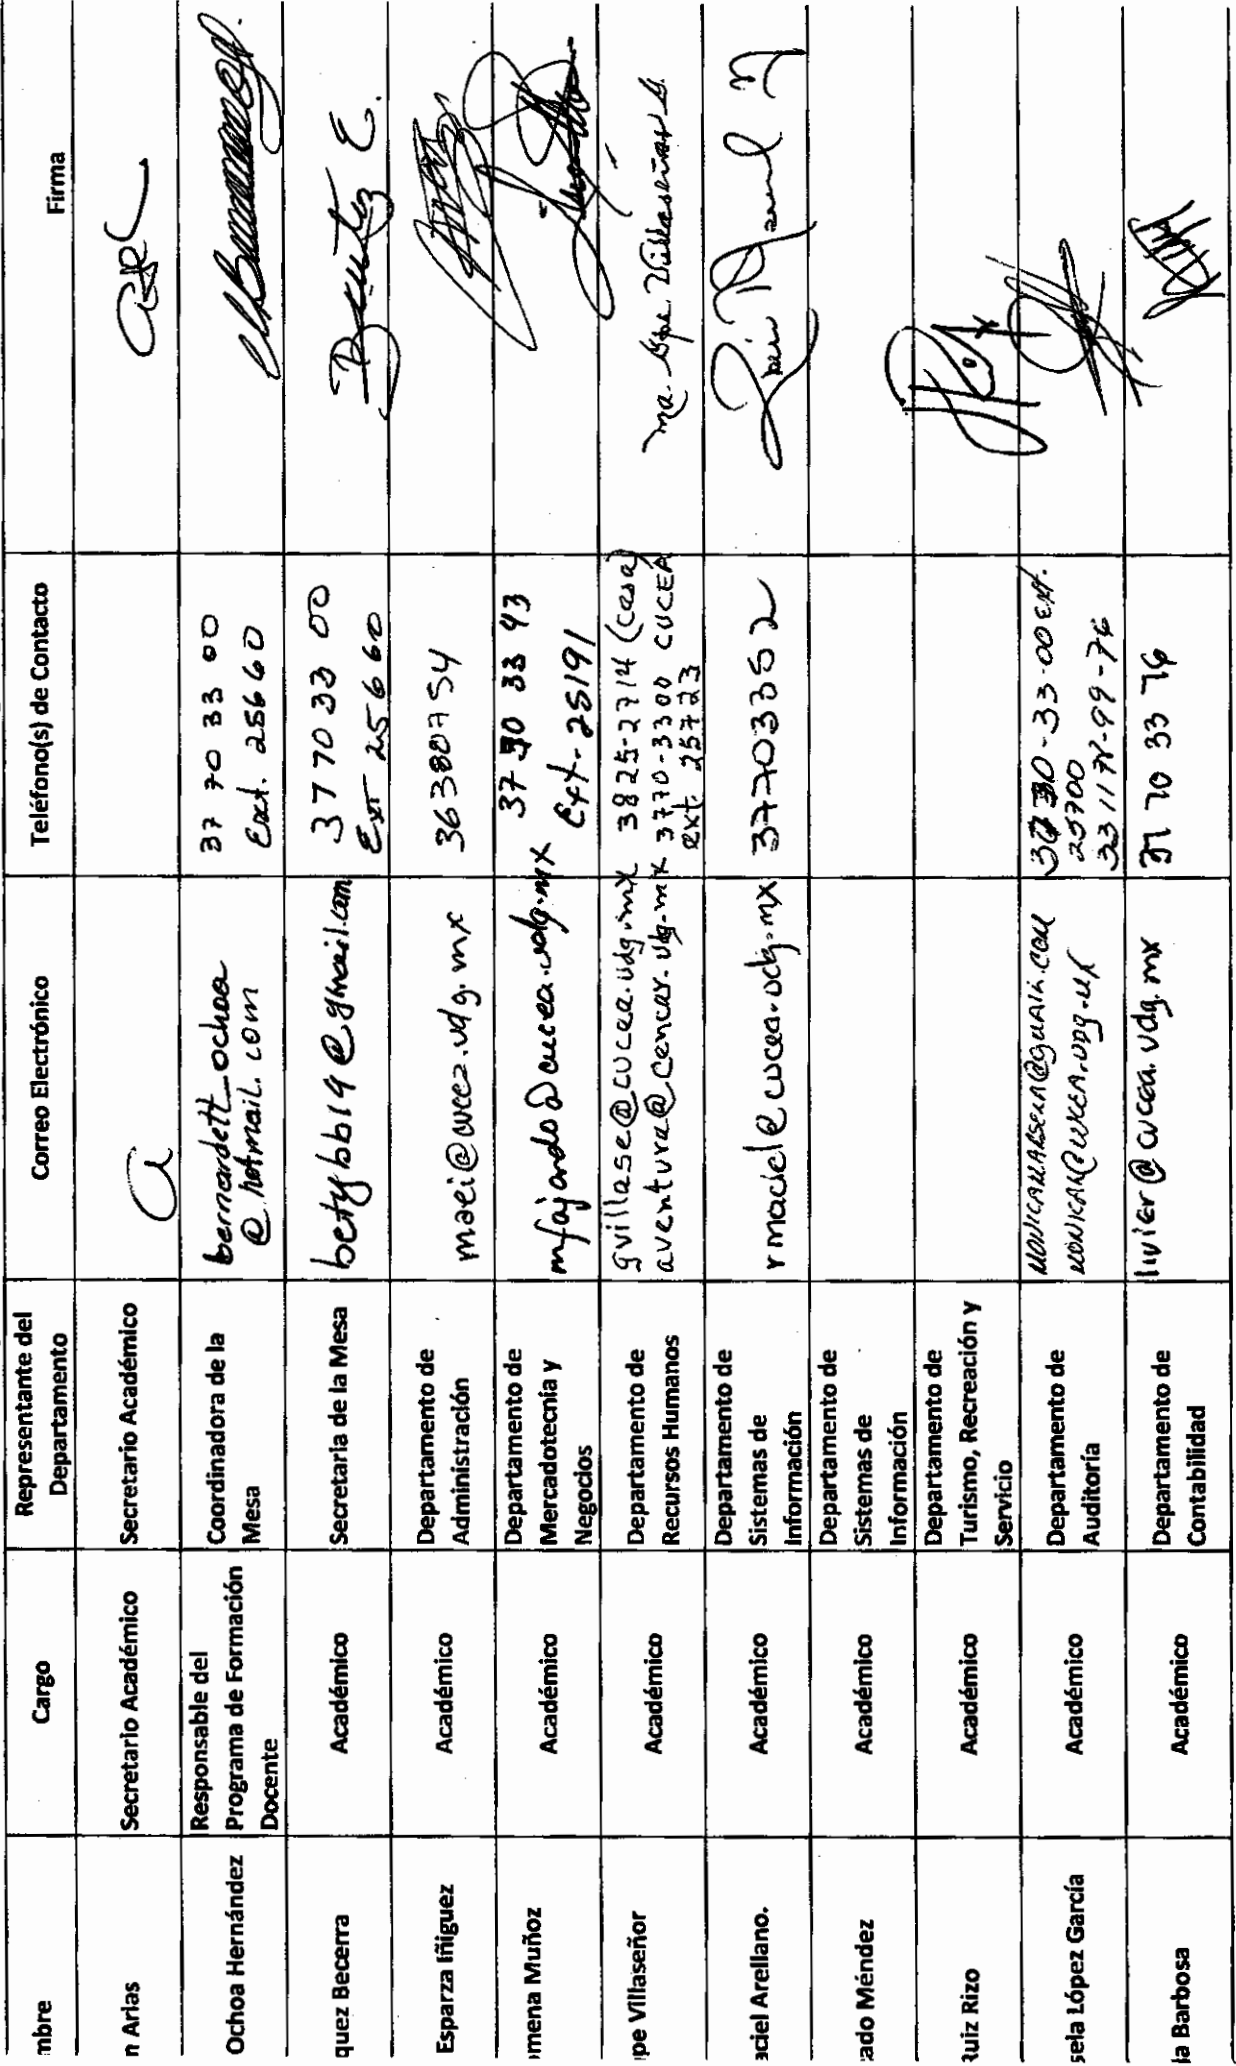 mbre
Cargo
Representante del
Departamento
Correo Electrónico
Teléfono(s) de Contacto
Firma
n Arias
Secretario Académico
Secretario Académico
Ochoa Hernández
Responsable del
Programa de Formación
Docente
Coordinadora de la
Mesa
bernardett_ochoa
@hotmail.com
37 70 33 00
Ext. 25660
quez Becerra
Académico
Secretaria de la Mesa
betybb19@gmail.com
37 70 33 00
Ext 25660
Benitez E.
Esparza Iñiguez
Académico
Departamento de
Administración
maei@cucea.udg.mx
36380754
mena Muñoz
Académico
Departamento de
Mercadotecnía y
Negocios
mfajardo@cucea.udg.mx
33 43
Ext-25191
pe Villaseñor
Académico
Departamento de
Recursos Humanos
gvillase@cucea.udg.mx
aventura@cencar.udg.mx
3825-2714 (casa)
3770-3300 CUCEA
ext. 25723
ma. Gpe Villaseñor G.
aciel Arellano.
Académico
Departamento de
Sistemas de
Información
rmaciel@cucea.udg.mx
37703352
ado Méndez
Académico
Departamento de
Sistemas de
Información
Ruiz Rizo
Académico
Departamento de
Turismo, Recreación y
Servicio
sela López García
Académico
Departamento de
Auditoría
33-00 Ext.
25700
la Barbosa
Académico
Departamento de
Contabilidad
livier@cucea.udg.mx
37 70 33 76